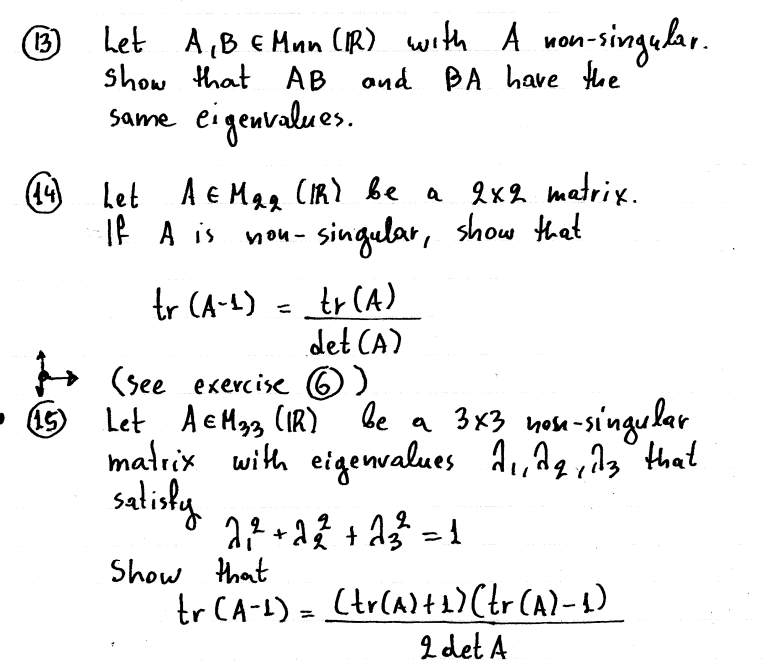 (13) Let A,B ∈ Mnn (ℝ) with A non-singular.
Show that AB and BA have the
same eigenvalues.
(14) Let A ∈ M22 (ℝ) be a 2x2 matrix.
If A is non-singular, show that
tr (A-1) = tr (A)
det (A)
(see exercise (6))
(15) Let A∈M33 (ℝ) be a 3x3 non-singular
matrix with eigenvalues λ1, λ2, λ3 that
satisfy
λ1² + λ2² + λ3² = 1
Show that
tr (A-1) = (tr(A)+1)(tr(A)-1)
2 det A